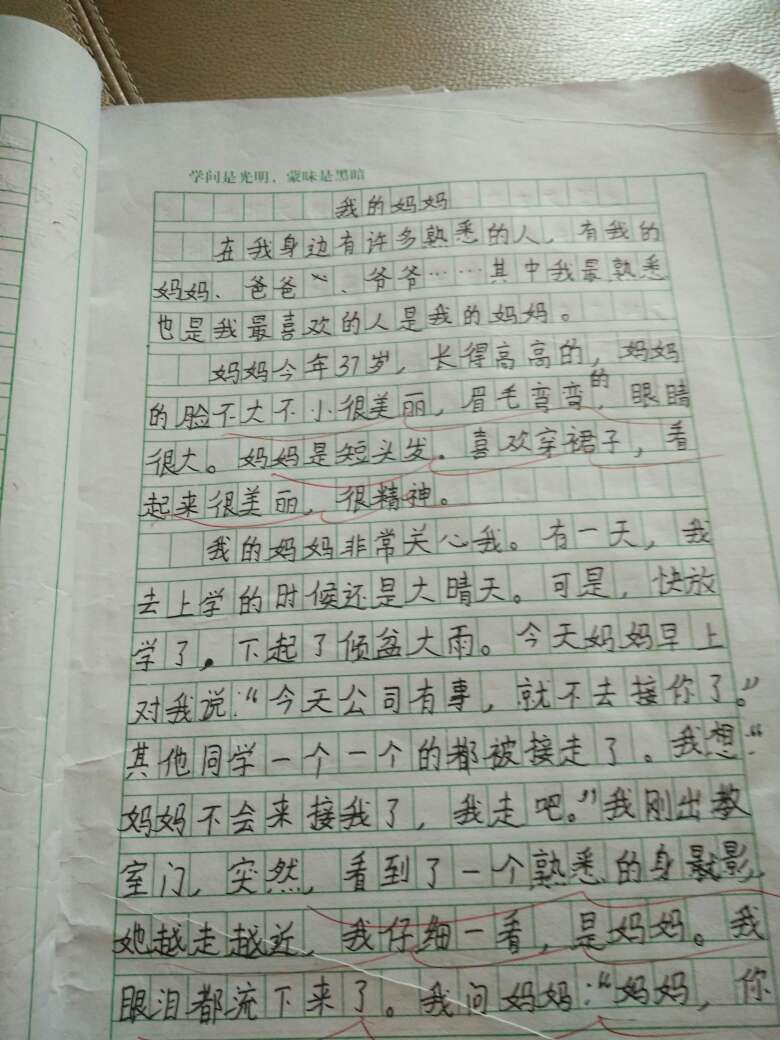 学问是光明，蒙昧是黑暗
我的妈妈
在我身边有许多熟悉的人，有我的
妈妈、爸爸、爷爷……其中我最熟悉
也是我最喜欢的人是我的妈妈。
妈妈今年37岁，长得高高的，妈妈
的脸不大不小很美丽，眉毛弯弯的，眼睛
很大。妈妈是短头发。喜欢穿裙子，看
起来很美丽，很精神。
我的妈妈非常关心我。有一天，我
去上学的时候还是大晴天。可是，快放
学了，下起了倾盆大雨。今天妈妈早上
对我说：“今天公司有事，就不去接你了。”
其他同学一个一个的都被接走了。我想：“
妈妈不会来接我了，我走吧。”我刚出教
室门，突然，看到了一个熟悉的身影，
她越走越近，我仔细一看，是妈妈。我
眼泪都流下来了。我问妈妈：“妈妈，你